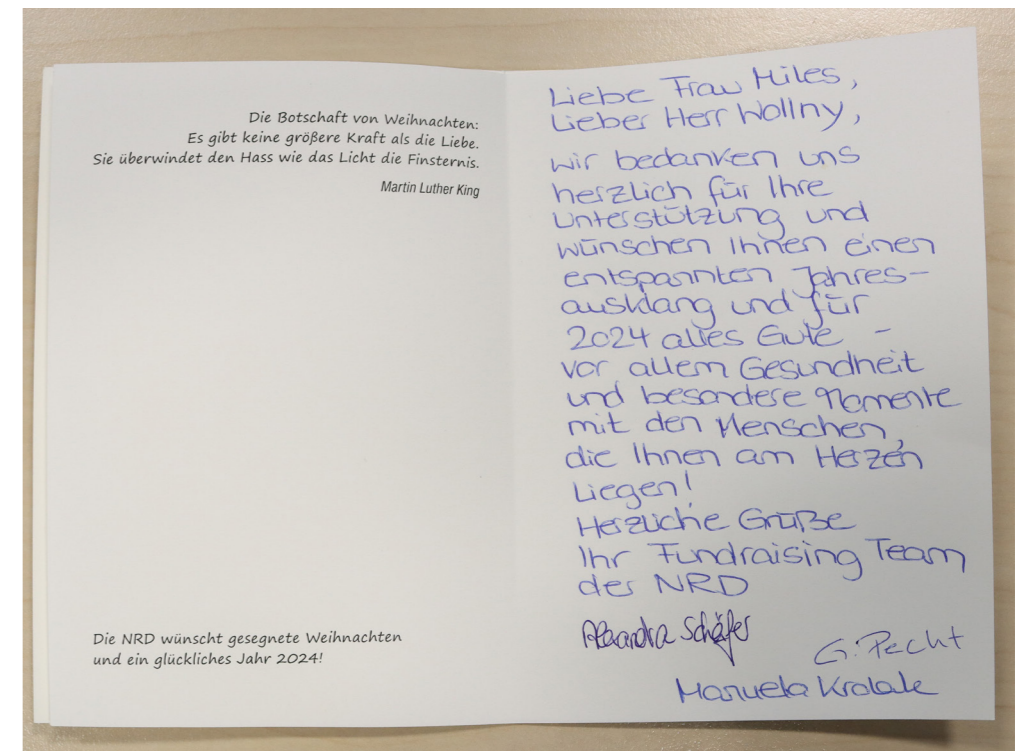 Die Botschaft von Weihnachten:
Es gibt keine größere Kraft als die Liebe.
Sie überwindet den Hass wie das Licht die Finsternis.
Martin Luther King
Die NRD wünscht gesegnete Weihnachten
und ein glückliches Jahr 2024!
Liebe Frau Miles,
Lieber Herr Wollny,
wir bedanken uns
herzlich für Ihre
Unterstützung und
wünschen Ihnen einen
entspannten Jahres-
ausklang und für
2024 alles Gute -
vor allem Gesundheit
und besondere Momente
mit den Menschen,
die Ihnen am Herzen
Liegen!
Herzliche Grüße
Ihr Fundraising Team
der NRD
Alexandra Schäfer
G. Pecht
Manuela